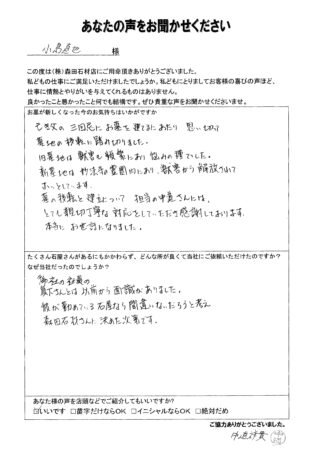 あなたの声をお聞かせください
様
この度は(株)森田石材店にご用命頂きありがとうございました。
私どもの仕事にご満足いただけましたでしょうか。私どもにとりましてお客様の喜びの声ほど、
仕事に情熱とやりがいを与えてくれるものはありません。
良かったこと悪かったこと何でも結構です。ぜひ貴重な声をお聞かせくださいませ。
お墓が新しくなった今のお気持ちはいかがですか
三回忌にお墓を建てるにあたり 思い切って
墓地の移転に踏み切りました。
旧墓地は獣害も頻繁にあり悩みの種でした。
新墓地は の霊園的にあり、獣害から解放されて
ほっとしています。
墓の移転と建立について 担当の さんには、
とても親切丁寧な対応をしていただき感謝しております。
本当にお世話になりました。
たくさん石屋さんがあるにもかかわらず、どんな所が良くて当社にご依頼いただけたのですか?
なぜ当社だったのでしょうか?
さんとは以前から面識がありました。
彼が勤めている石屋なら間違いないだろうと考え
森田石材さんに決めた次第です。
あなた様の声を店頭などでご紹介してもいいですか?
☑いいです □苗字だけならOK □イニシャルならOK □絶対だめ
ご協力ありがとうございました。